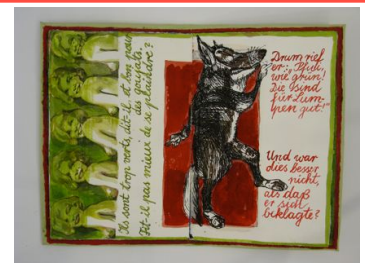 Ils sont trop verts, dit-il, et bon pour
des goujats.
Fit-il pas mieux de se plaindre?
Drum rief
er: „Pfui,
wie grün!
Die sind
für Lum-
pen gut!"
Und war
dies besser
nicht,
als daß
er sich
beklagte?